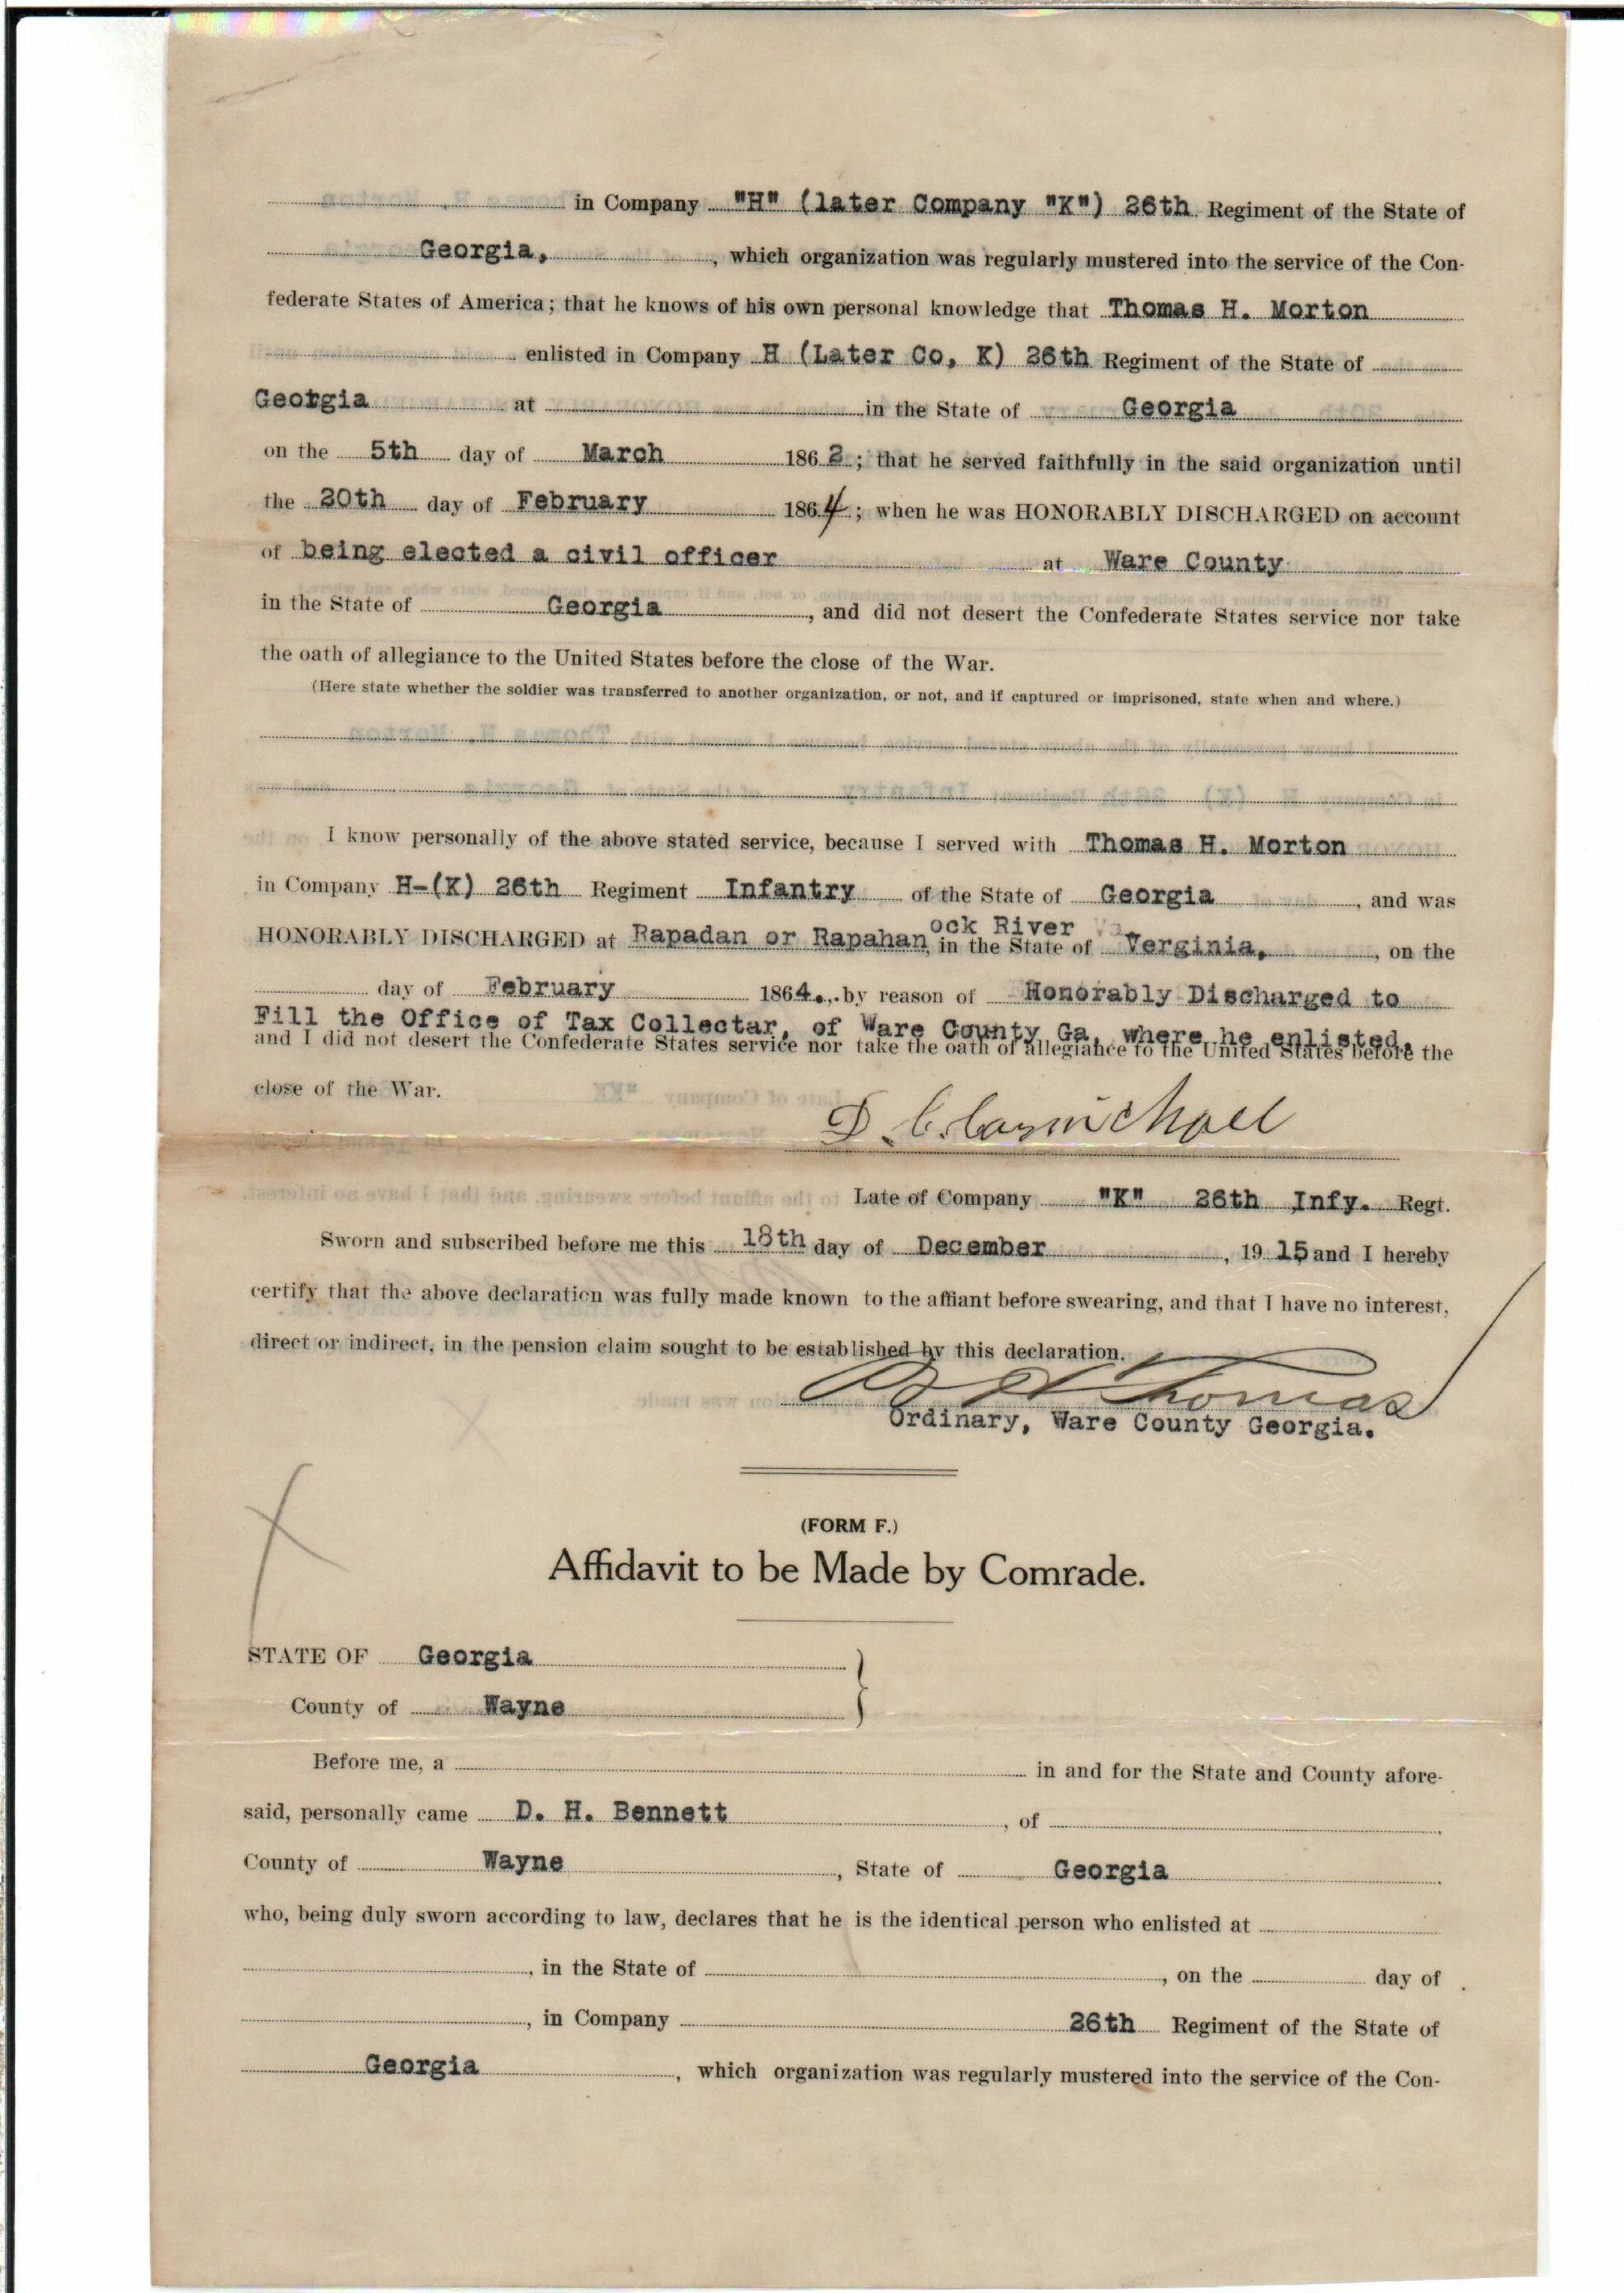 in Company "H" (later Company "K") 26th Regiment of the State of
Georgia, , which organization was regularly mustered into the service of the Con-
federate States of America; that he knows of his own personal knowledge that Thomas H. Morton
enlisted in Company H (Later Co, K) 26th Regiment of the State of
Georgia at in the State of Georgia
on the 5th day of March 1862; that he served faithfully in the said organization until
the 20th day of February 1864; when he was HONORABLY DISCHARGED on account
of being elected a civil officer at Ware County
in the State of Georgia, and did not desert the Confederate States service nor take
the oath of allegiance to the United States before the close of the War.
(Here state whether the soldier was transferred to another organization, or not, and if captured or imprisoned, state when and where.)
I know personally of the above stated service, because I served with Thomas H. Morton
in Company H-(K) 26th Regiment Infantry of the State of Georgia, and was
ock River
HONORABLY DISCHARGED at Rapadan or Rapahan, in the State of Verginia, , on the
day of February 1864., by reason of Honorably Discharged to
Fill the Office of Tax Collectar, of Ware County Ga, where he enlisted,
and I did not desert the Confederate States service nor take the oath of allegiance to the United States before the
close of the War.
D. C. Carmichael
Late of Company "K" 26th Infy. Regt.
Sworn and subscribed before me this 18th day of December, 1915 and I hereby
certify that the above declaration was fully made known to the affiant before swearing, and that I have no interest,
direct or indirect, in the pension claim sought to be established by this declaration.
Thomas
Ordinary, Ware County Georgia.
(FORM F.)
Affidavit to be Made by Comrade.
STATE OF Georgia
County of Wayne
Before me, a in and for the State and County afore-
said, personally came D. H. Bennett, of
County of Wayne, State of Georgia
who, being duly sworn according to law, declares that he is the identical person who enlisted at
, in the State of , on the day of
, in Company 26th Regiment of the State of
Georgia, which organization was regularly mustered into the service of the Con-